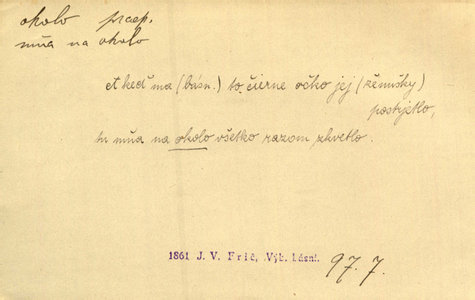 okolo praep.
mňa na okolo
A keď ma (básn.) to čierne očko jej (zemušky)
postrjetlo,
tu mňa na okolo všetko razom zkvetlo.
1861 J. V. Frič, Výb. básní.
97. 7.